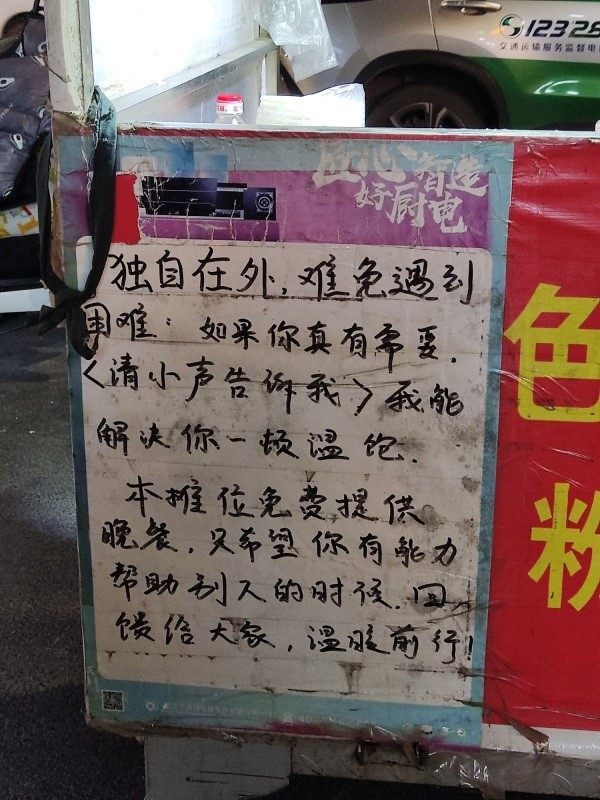 12328
交通运输服务监督电
匠心智造
好厨电
独自在外，难免遇到
困难：如果你真有需要.
<请小声告诉我>我能
解决你一顿温饱.
本摊位免费提供
晚餐，只希望你有能力
帮助别人的时候，回
馈给大家，温暖前行！
色
粉